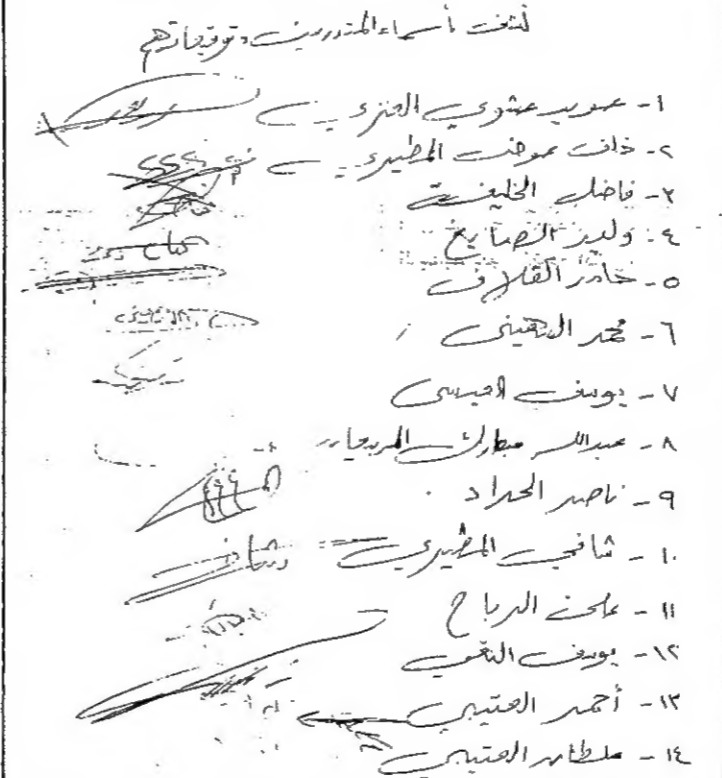 كشف بأسماء المتدربين وتوقيعاتهم
١- عويد عشوي العنزي
٢- خلف عوض المطيري
٣- فاضل الخليفة
٤- وليد الصايغ
٥- خالد القلاف
٦- محمد
٧- يوسف العيسى
٨- عبدالله مبارك
٩- ناصر الحداد
١٠- شافي المطيري
١١- علي الرباح
١٢- يوسف
١٣- أحمد العتيبي
١٤- سلطان العتيبي